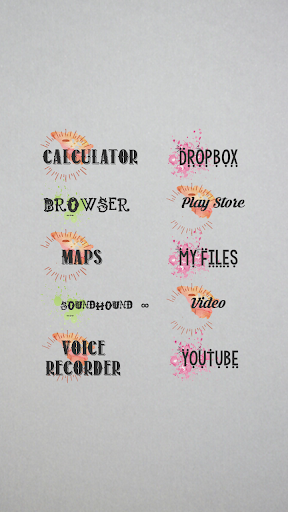 CALCULATOR
DROPBOX
BROWSER
Play Store
MAPS
MY FILES
SOUNDHOUND ∞
Video
VOICE
RECORDER
YOUTUBE